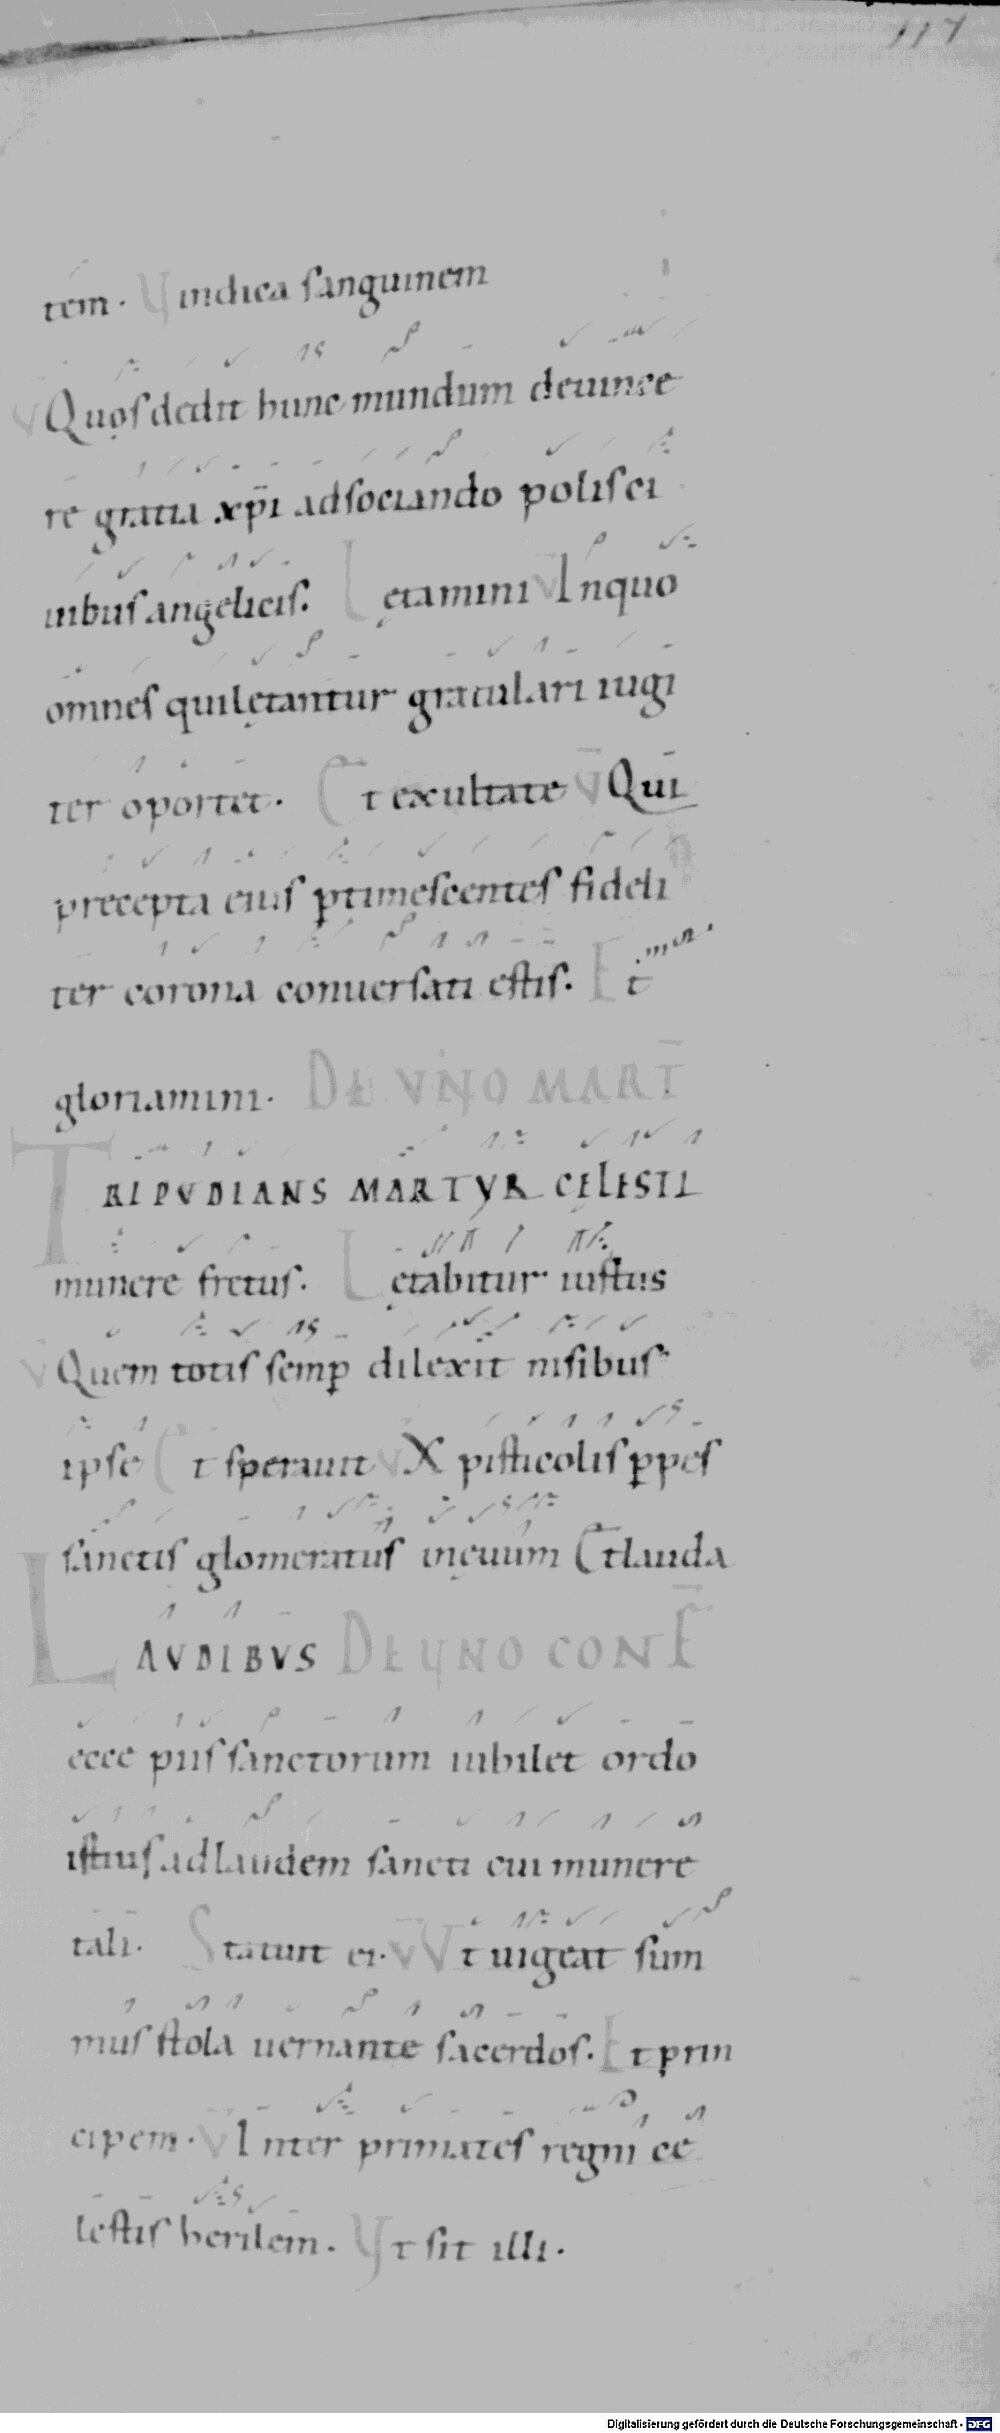 117
tem. Vindica sanguinem
V Quos dedit hunc mundum deuince
re gratia xp̄i adsociando polis ci
uibus angelicis. Lętamini V Inquo
omnes qui lętantur gratulari iugi
ter oportet. Et exultate V Qui
precepta eius ꝑtimescentes fideli
ter corona conuersati estis. Et
gloriamini. DE VNO MART̄
TRIPVDIANS MARTYR CĘLESTI
munere fretus. Lętabitur iustus
V Quem totis semꝑ dilexit nisibus
ipse Et sperauit V Xpisticolis ꝑpes
sanctis glomeratus inęuum Et lauda
LAVDIBVS DE VNO CONF̄
ecce piis sanctorum iubilet ordo
istius ad laudem sancti cui munere
tali. Statuit ei. V Vt uigeat sum
mus stola uernante sacerdos. Et prin
cipem. V Inter primates regni ce
lestis herilem. Vt sit illi.
Digitalisierung gefördert durch die Deutsche Forschungsgemeinschaft - DFG